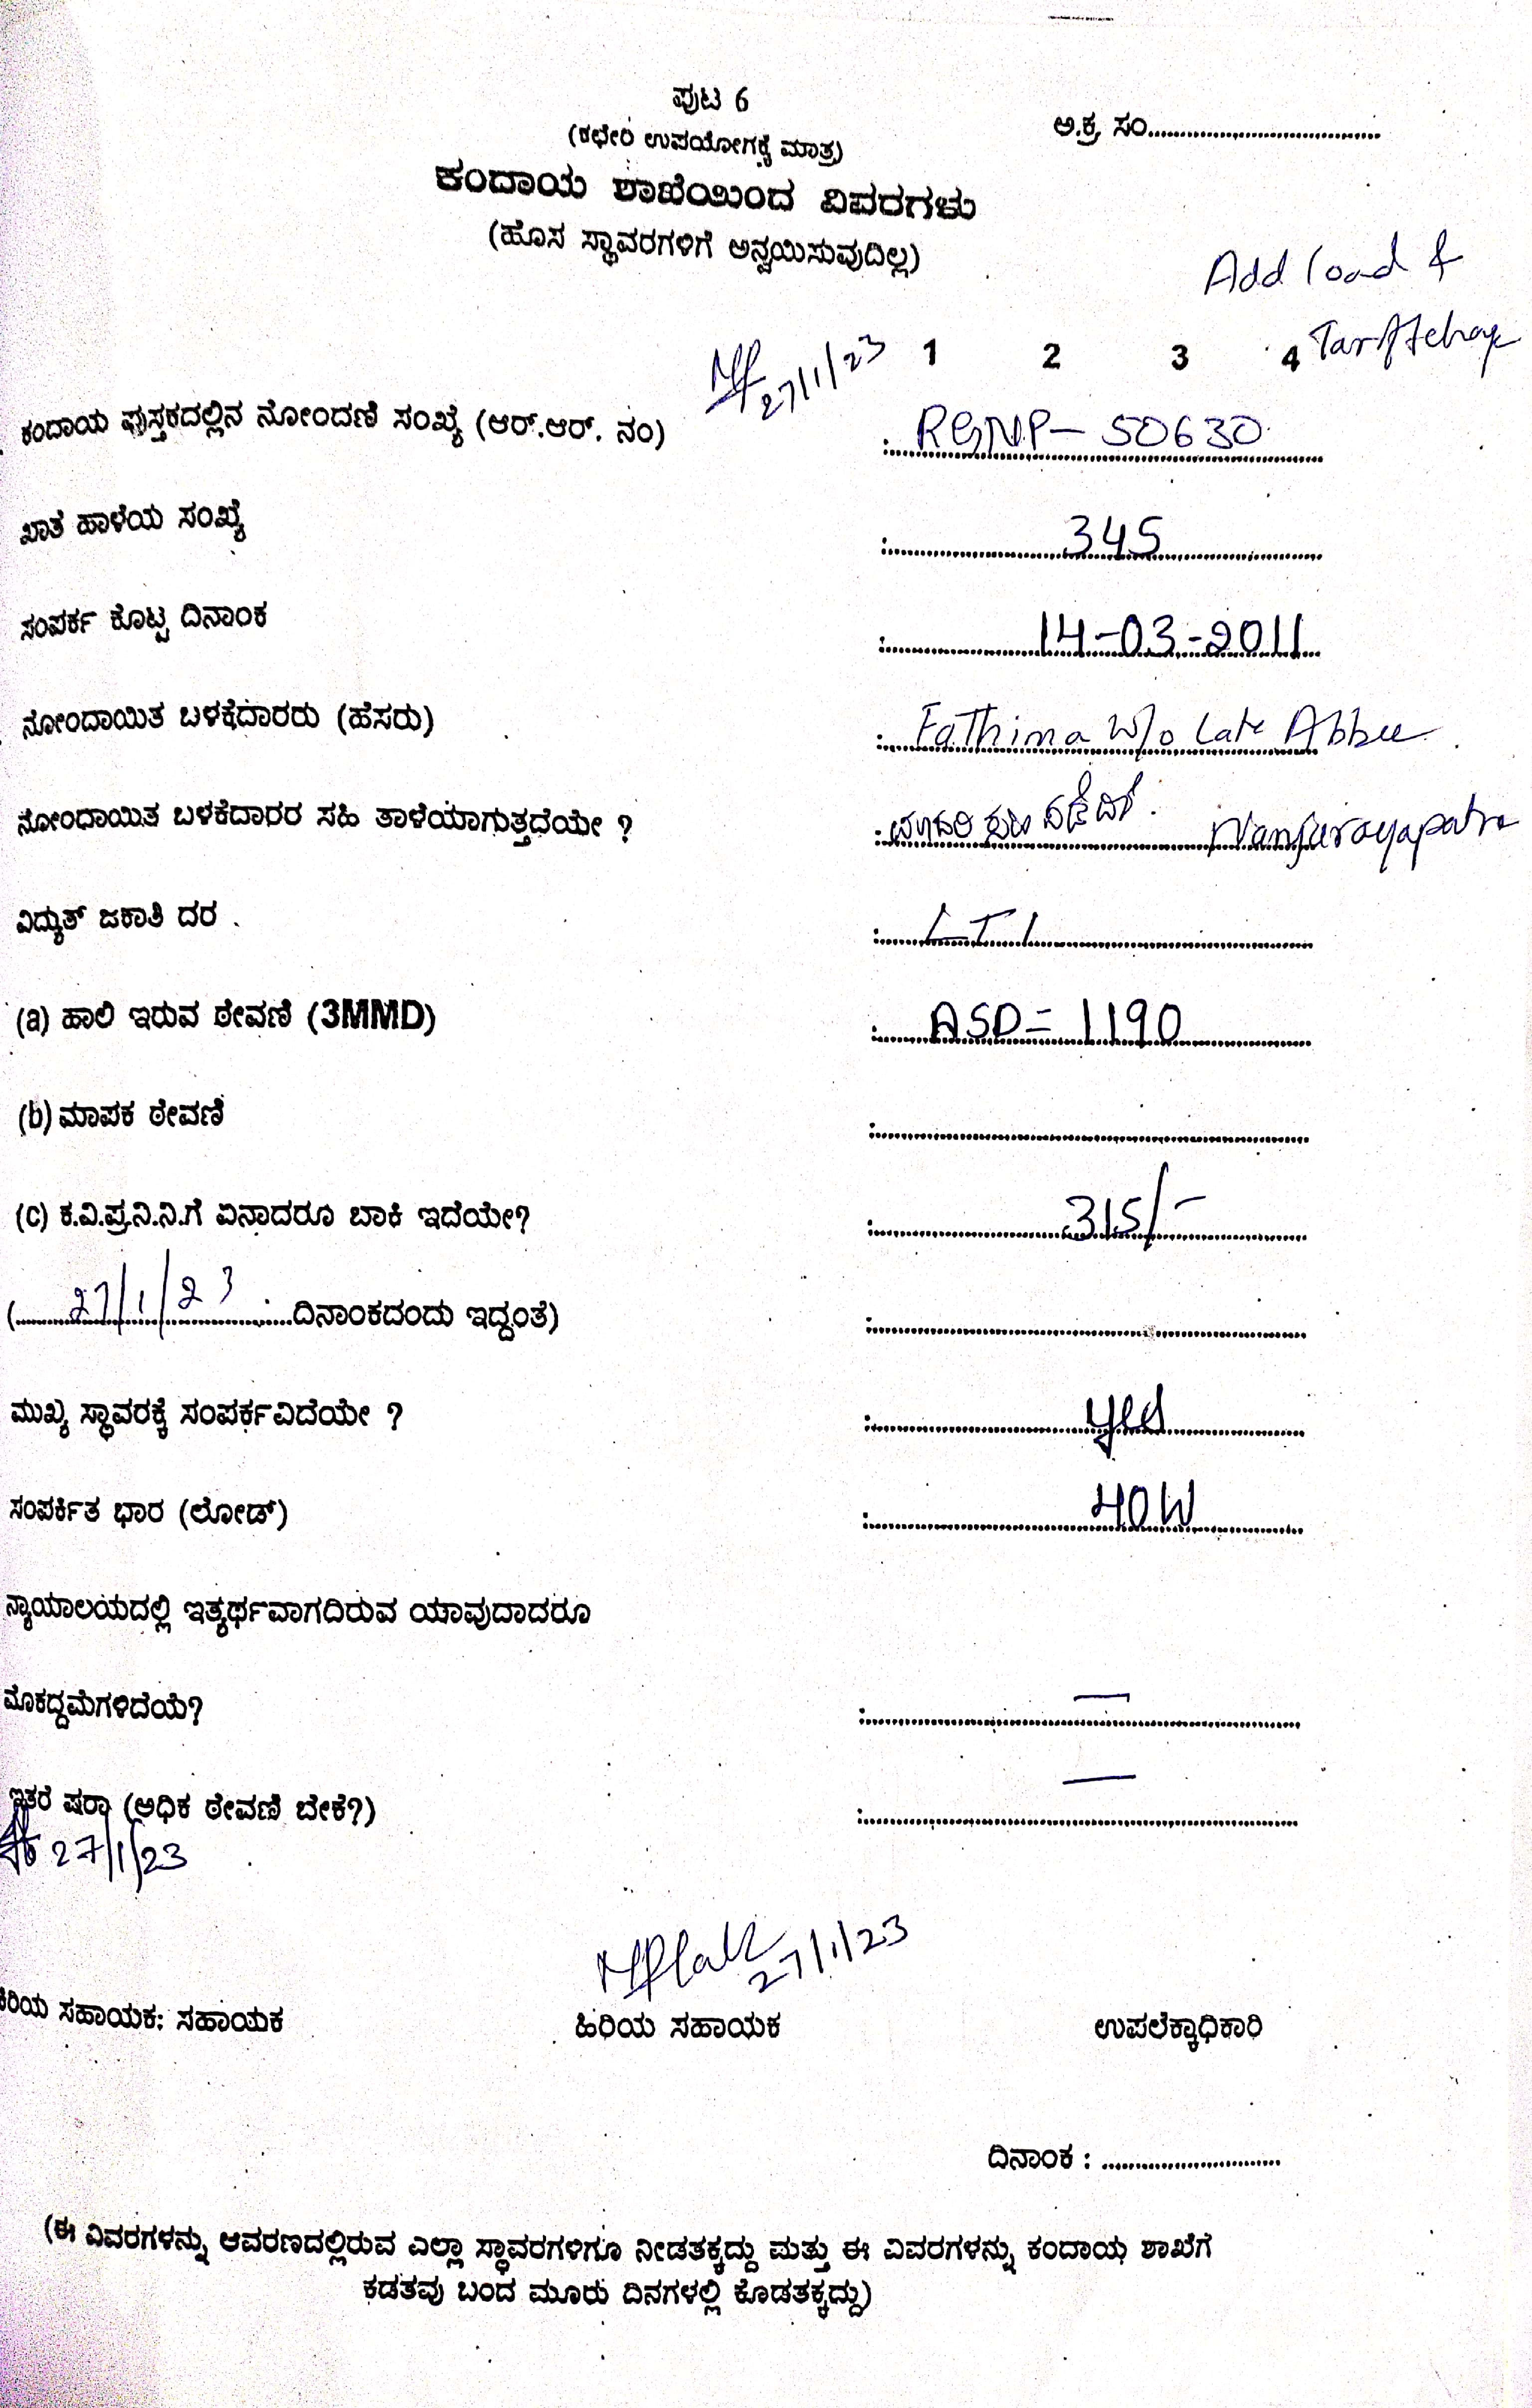 ಪುಟ 6
(ಕಛೇರಿ ಉಪಯೋಗಕ್ಕೆ ಮಾತ್ರ)
ಅ.ಕ್ರ. ಸಂ........................................
ಕಂದಾಯ ಶಾಖೆಯಿಂದ ವಿವರಗಳು
(ಹೊಸ ಸ್ಥಾವರಗಳಿಗೆ ಅನ್ವಯಿಸುವುದಿಲ್ಲ)
Add load &
27/1/23 1 2 3 4
ಕಂದಾಯ ಪುಸ್ತಕದಲ್ಲಿನ ನೋಂದಣಿ ಸಂಖ್ಯೆ (ಆರ್.ಆರ್. ನಂ) : RGNP- 50630
ಖಾತೆ ಹಾಳೆಯ ಸಂಖ್ಯೆ : 345
ಸಂಪರ್ಕ ಕೊಟ್ಟ ದಿನಾಂಕ : 14-03-2011
ನೋಂದಾಯಿತ ಬಳಕೆದಾರರು (ಹೆಸರು) : Fathima W/o Late Abbu
ನೋಂದಾಯಿತ ಬಳಕೆದಾರರ ಸಹಿ ತಾಳೆಯಾಗುತ್ತದೆಯೇ ? : Nanjarayapatna
ವಿದ್ಯುತ್ ಜಕಾತಿ ದರ . : LT1
(a) ಹಾಲಿ ಇರುವ ಠೇವಣಿ (3MMD) : ASD= 1190
(b) ಮಾಪಕ ಠೇವಣಿ :
(c) ಕ.ವಿ.ಪ್ರ.ನಿ.ನಿ.ಗೆ ಏನಾದರೂ ಬಾಕಿ ಇದೆಯೇ? : 315/-
(27/1/23 ದಿನಾಂಕದಂದು ಇದ್ದಂತೆ) :
ಮುಖ್ಯ ಸ್ಥಾವರಕ್ಕೆ ಸಂಪರ್ಕವಿದೆಯೇ ? : yes
ಸಂಪರ್ಕಿತ ಭಾರ (ಲೋಡ್) : 40W
ನ್ಯಾಯಾಲಯದಲ್ಲಿ ಇತ್ಯರ್ಥವಾಗದಿರುವ ಯಾವುದಾದರೂ
ಮೊಕದ್ದಮೆಗಳಿದೆಯೆ? : —
ಇತರೆ ಷರಾ (ಅಧಿಕ ಠೇವಣಿ ಬೇಕೆ?) : —
27/1/23
27/1/23
ಕಿರಿಯ ಸಹಾಯಕ: ಸಹಾಯಕ ಹಿರಿಯ ಸಹಾಯಕ ಉಪಲೆಕ್ಕಾಧಿಕಾರಿ
ದಿನಾಂಕ : ..............................
(ಈ ವಿವರಗಳನ್ನು ಆವರಣದಲ್ಲಿರುವ ಎಲ್ಲಾ ಸ್ಥಾವರಗಳಿಗೂ ನೀಡತಕ್ಕದ್ದು ಮತ್ತು ಈ ವಿವರಗಳನ್ನು ಕಂದಾಯ ಶಾಖೆಗೆ
ಕಡತವು ಬಂದ ಮೂರು ದಿನಗಳಲ್ಲಿ ಕೊಡತಕ್ಕದ್ದು)